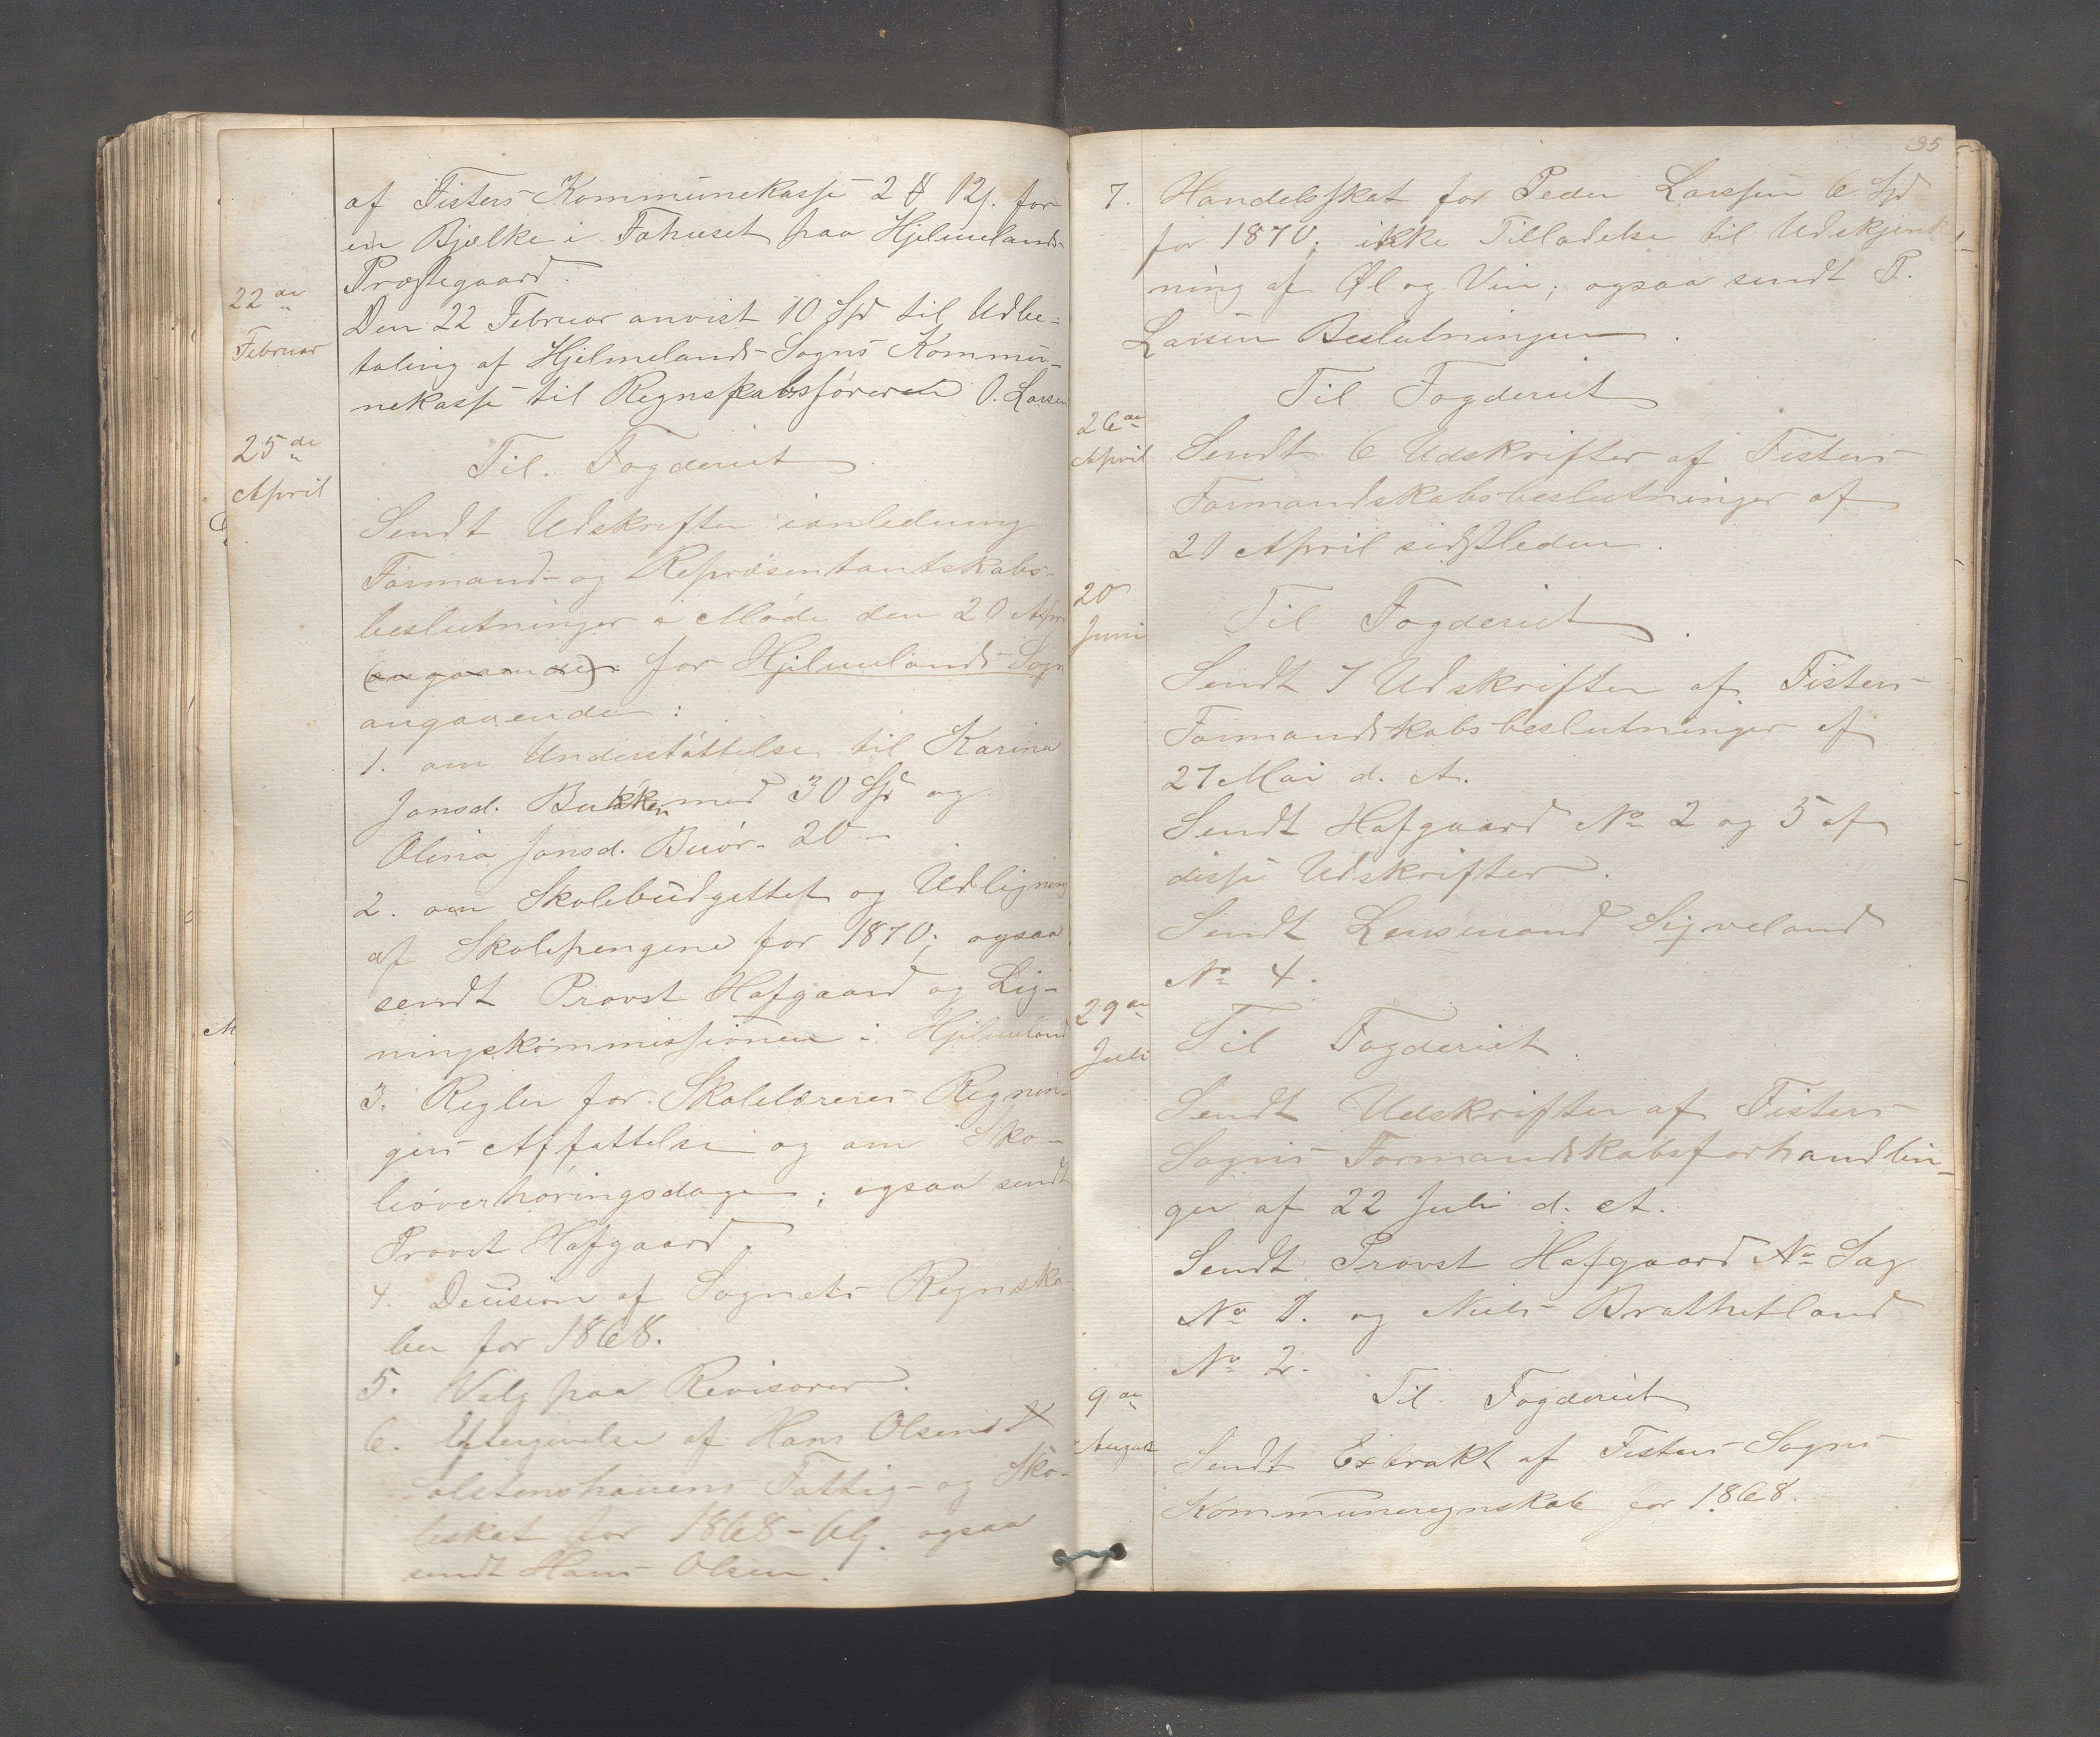 af Fisters Kommunekasse 2 ₰ 12 s. for
en Bjelke i Fahuset paa Hjelmelands-
Præstegaard.
22de
Februar
Den 22 Februar anvist 10 Spd til Udbe-
taling af Hjelmelands-Sogns Kommu-
nekasse til Regnskabsføreren O. Larsen
25de
April
Til Fogderiet
Sendt Udskrifter ianledning
Formand- og Repræsentantskabs-
beslutninger i Møde den 20 April
(angaaende) for Hjelmelands-Sogn
angaaende:
1. om Understøttelse til Karina
Jonsd. Bakken med 30 Spd og
Olina Jonsd. 20 -
2. om Skolebudgettet og Udligning
af Skolepengene for 1870; ogsaa
sendt Provst Hafgaard og Lig-
ningskommissionen i Hjelmeland
3. Regler for Skolelæreres Regnin-
gers Affattelse og om Sko-
leoverhøringsdage; ogsaa sendt
Provst Hafgaard.
4. Decision af Sognets Regnska-
ber for 1868.
5. Valg paa Revisorer.
6. Eftergivelse af Hans Olsens
Fattig- og Sko-
leskat for 1868-69. ogsaa
sendt Hans Olsen.
35
7. Handelsskat for Peder Larssen 6 Spd
for 1870; ikke Tilladelse til Udskjenk-
ning af Øl og Vin; ogsaa sendt P.
Larsen Beslutningen.
Til Fogderiet
26de
April
Sendt 6 Udskrifter af Fisters-
Formandskabsbeslutninger af
21 April sidstleden.
20
Juni
Til Fogderiet.
Sendt 7 Udskrifter af Fisters-
Formandskabsbeslutninger af
27 Mai d. A.
Sendt Hafgaard No 2 og 5 af
disse Udskrifter.
Sendt Lensmand Sigveland
No 4.
29de
Juli
Til Fogderiet.
Sendt Udskrifter af Fisters
Sogns Formandskabsforhandlin-
ger af 22 Juli d. A.
Sendt Provst Hafgaard No Sag
No 1. og Niels Brathetland
No 2.
9de
August
Til Fogderiet
Sendt Extrakt af Fisters Sogns
Kommuneregnskab for 1868.